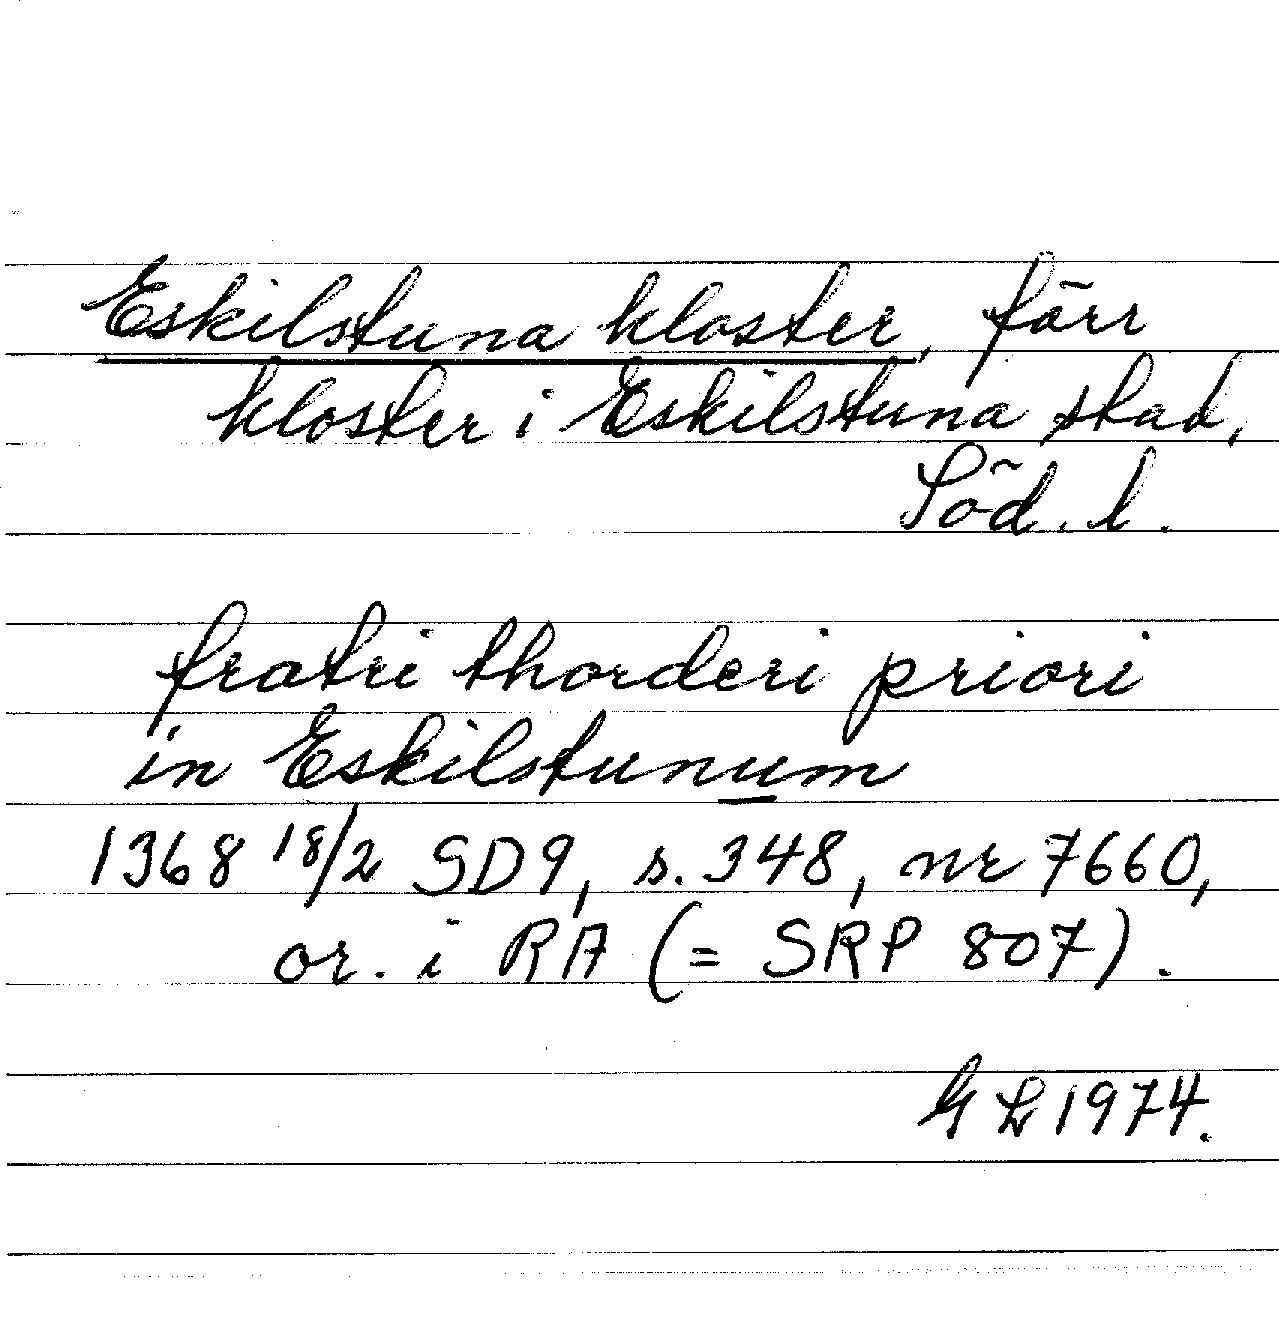 Eskilstuna kloster, förr
kloster i Eskilstuna stad,
Söd. l.
fratri thorderi priori
in Eskilstunum
1368 18/2 SD9, s. 348, nr 7660,
or. i RA (= SRP 807).
GL 1974.